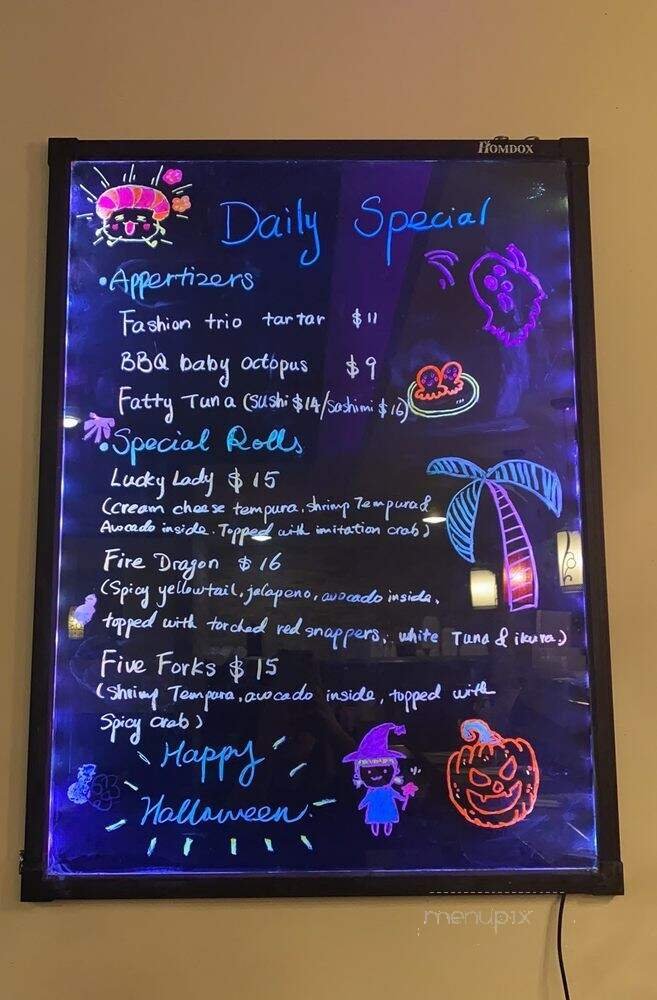 HOMDOX
Daily Special
•Appertizers
Fashion trio tartar $11
BBQ baby octopus $9
Fatty Tuna (sushi $14/sashimi $16)
•Special Rolls
Lucky Lady $15
(cream cheese tempura, shrimp Tempura &
Avocado inside. Topped with imitation crab)
Fire Dragon $16
(Spicy yellowtail, jalapeno, avocado inside,
topped with torched red snappers, white Tuna & ikura,)
Five Forks $15
(Shrimp Tempura, avocado inside, topped with
Spicy crab)
Happy
Halloween.
menupix